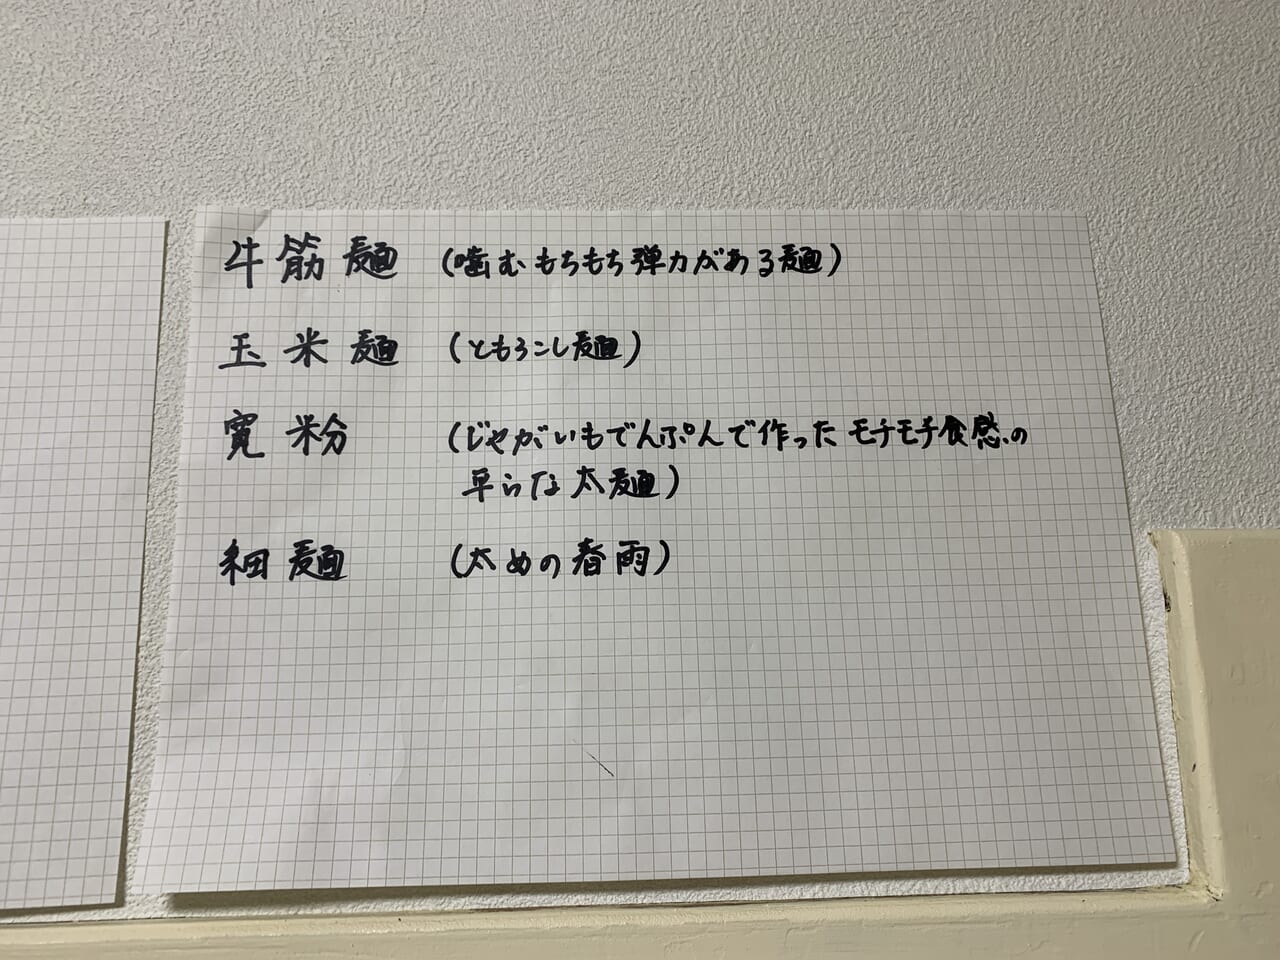 牛筋麺 (噛むもちもち弾力がある麺)
玉米麺 (ともろこし麺)
寛粉 (じゃがいもでんぷんで作ったモチモチ食感の
早らな太麺)
細麺 (太めの春雨)